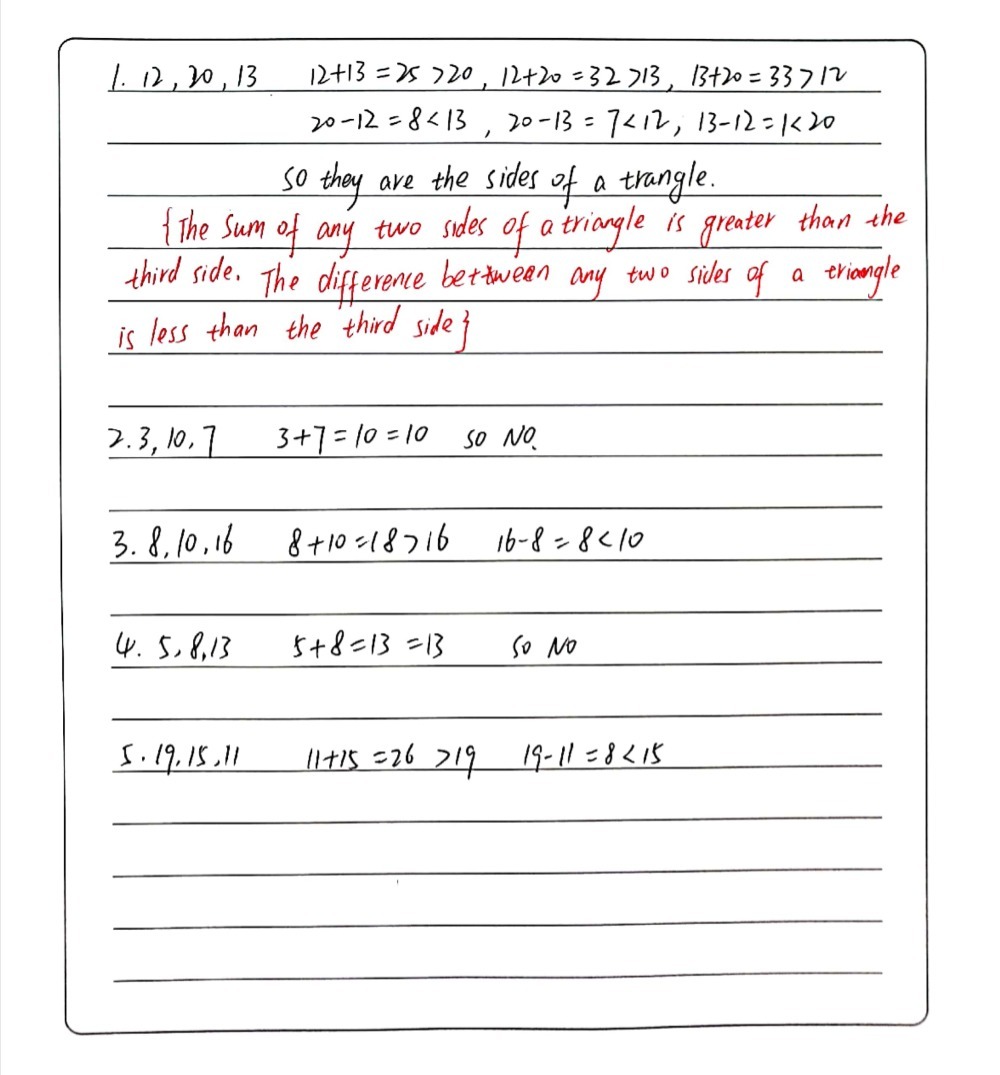 1. 12, 20, 13 12+13=25>20, 12+20=32>13, 13+20=33>12
20-12=8<13, 20-13=7<12, 13-12=1<20
so they are the sides of a trangle.
{The Sum of any two sides of a triangle is greater than the
third side. The difference bettween any two sides of a triangle
is less than the third side}
2. 3, 10, 7 3+7=10=10 so NO.
3. 8, 10, 16 8+10=18>16 16-8=8<10
4. 5, 8, 13 5+8=13=13 so NO
5. 19, 15, 11 11+15=26>19 19-11=8<15